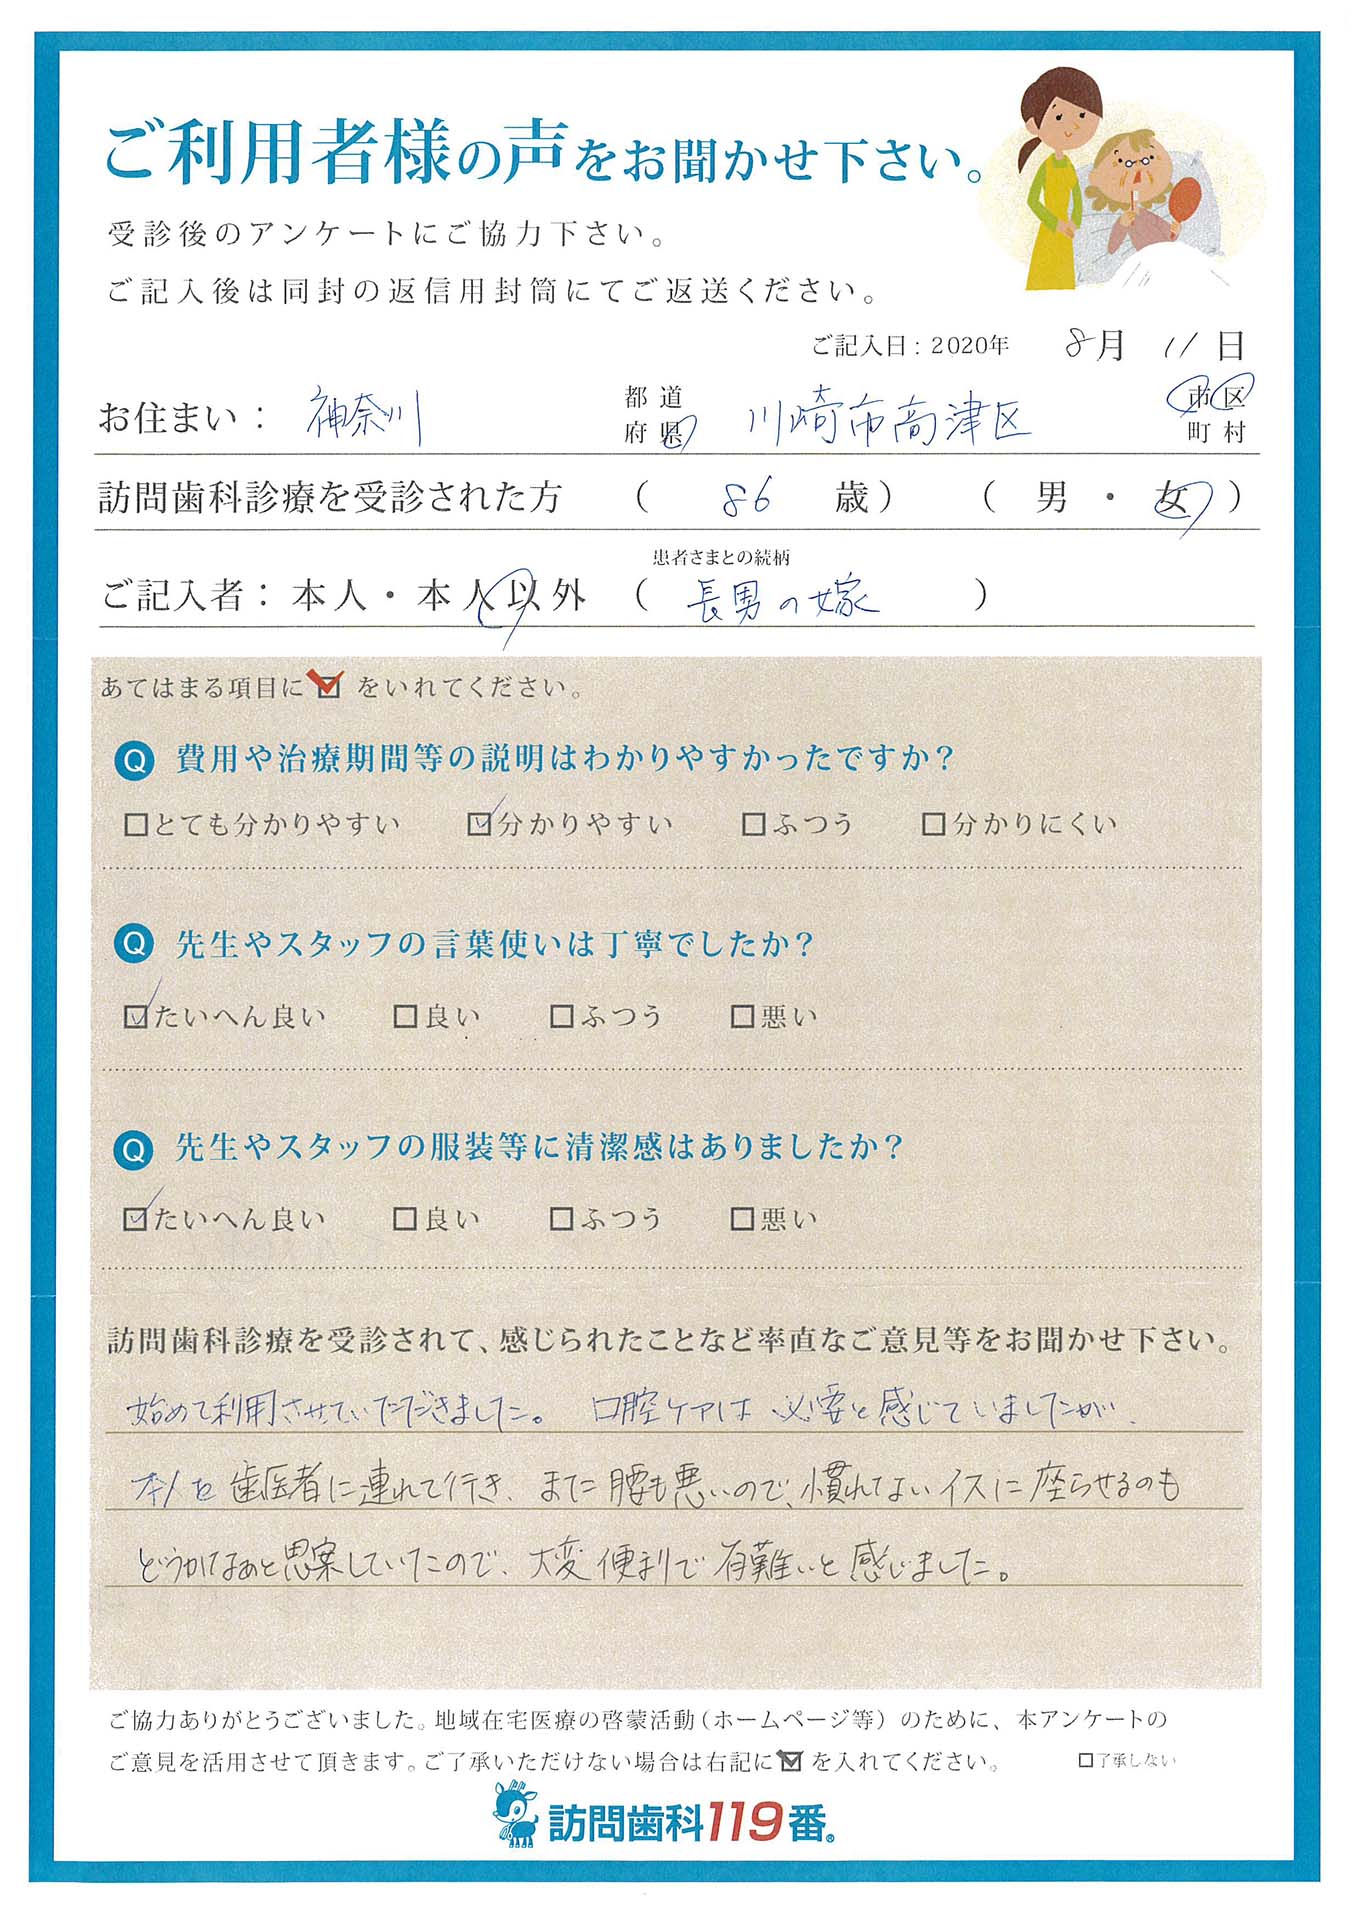 ご利用者様の声をお聞かせ下さい。
受診後のアンケートにご協力下さい。
ご記入後は同封の返信用封筒にてご返送ください。
ご記入日：2020年 8月 11日
お住まい： 神奈川 都道府県 川崎市高津区 市区町村
訪問歯科診療を受診された方 （ 86 歳） （ 男 ・ 女 ）
患者さまとの続柄
ご記入者：本人・本人以外 （ 長男の嫁 ）
あてはまる項目に☑をいれてください。
Q 費用や治療期間等の説明はわかりやすかったですか？
☐とても分かりやすい ☑分かりやすい ☐ふつう ☐分かりにくい
Q 先生やスタッフの言葉使いは丁寧でしたか？
☑たいへん良い ☐良い ☐ふつう ☐悪い
Q 先生やスタッフの服装等に清潔感はありましたか？
☑たいへん良い ☐良い ☐ふつう ☐悪い
訪問歯科診療を受診されて、感じられたことなど率直なご意見等をお聞かせ下さい。
始めて利用させていただきました。 口腔ケアは必要と感じていましたが、
本人を歯医者に連れて行き、また腰も悪いので、慣れてないイスに座らせるのも
どうかなぁと思案していたので、大変便利で有難いと感じました。
ご協力ありがとうございました。地域在宅医療の啓蒙活動（ホームページ等）のために、本アンケートの
ご意見を活用させて頂きます。ご了承いただけない場合は右記に☑を入れてください。 ☐了承しない
訪問歯科119番®